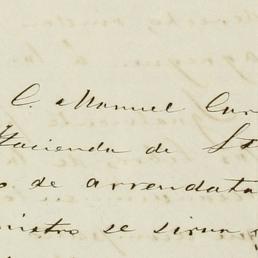 C. Manuel Car
Hacienda de St
o de arrendata
nistro se sirva